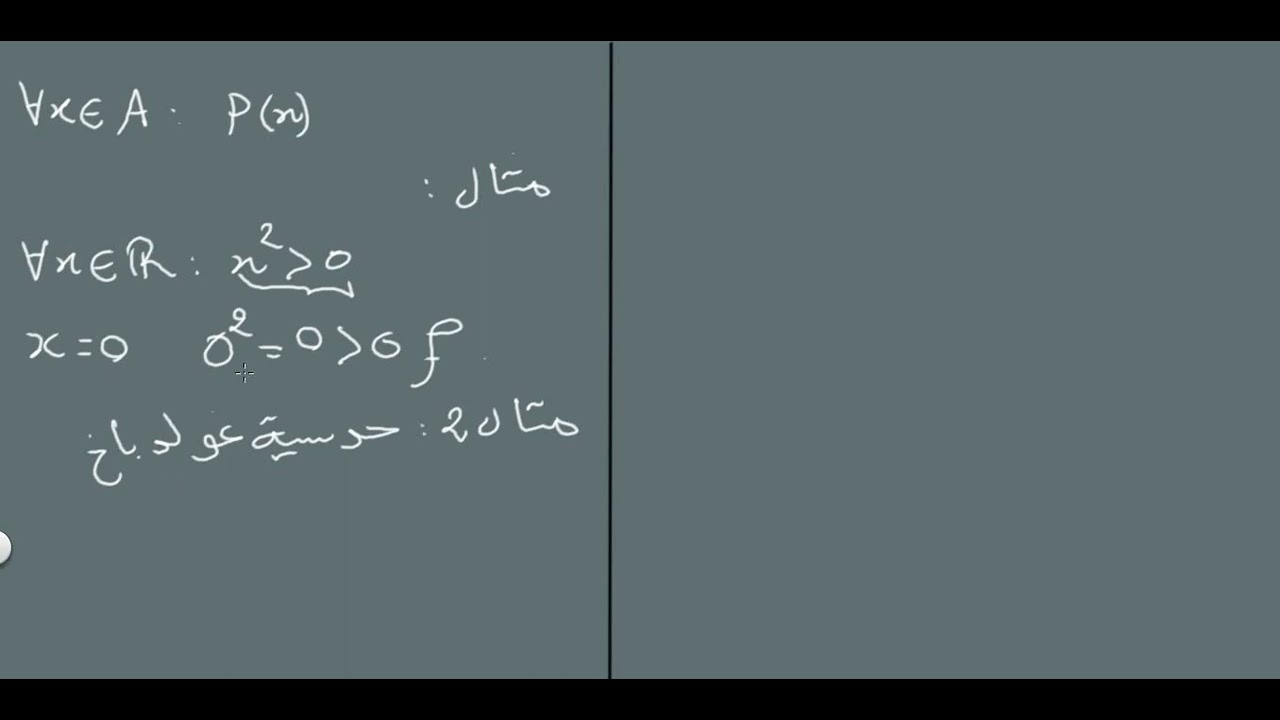 ∀x∈A : P(x)
مثال :
∀x∈ℝ : x²>0
x=0 0²=0>0 f
مثال 2 : حدسية غولدباخ